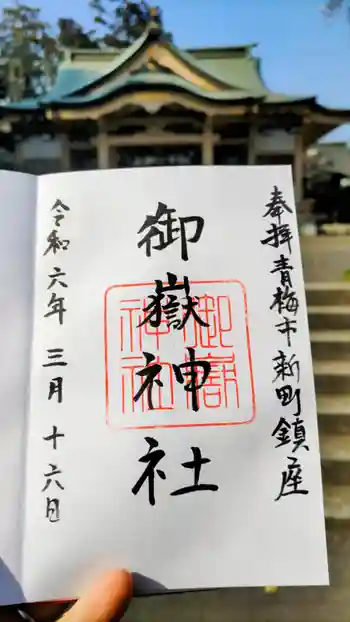 奉拝 青梅市新町鎮座
御嶽神社
御嶽神社
令和六年 三月 十六日